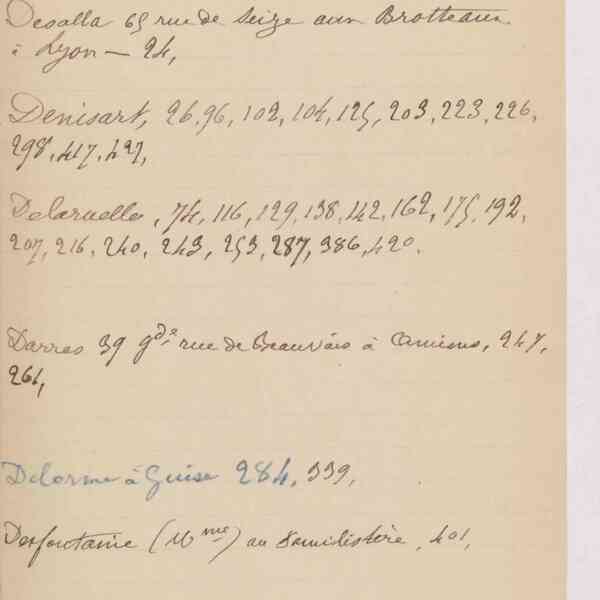 Desalla 65 rue de Seize aux Brotteaux
à Lyon — 24,
Denisart, 26, 96, 102, 104, 125, 203, 223, 226,
298, 417, 427,
Delaruelle, 74, 116, 129, 138, 142, 162, 175, 192,
207, 216, 240, 243, 253, 287, 386, 420.
Darras 39 gde rue de Beauvais à Amiens, 247,
261,
Delorme à Guise 284, 339,
Desfontaine (Mme) au Familistère, 401,